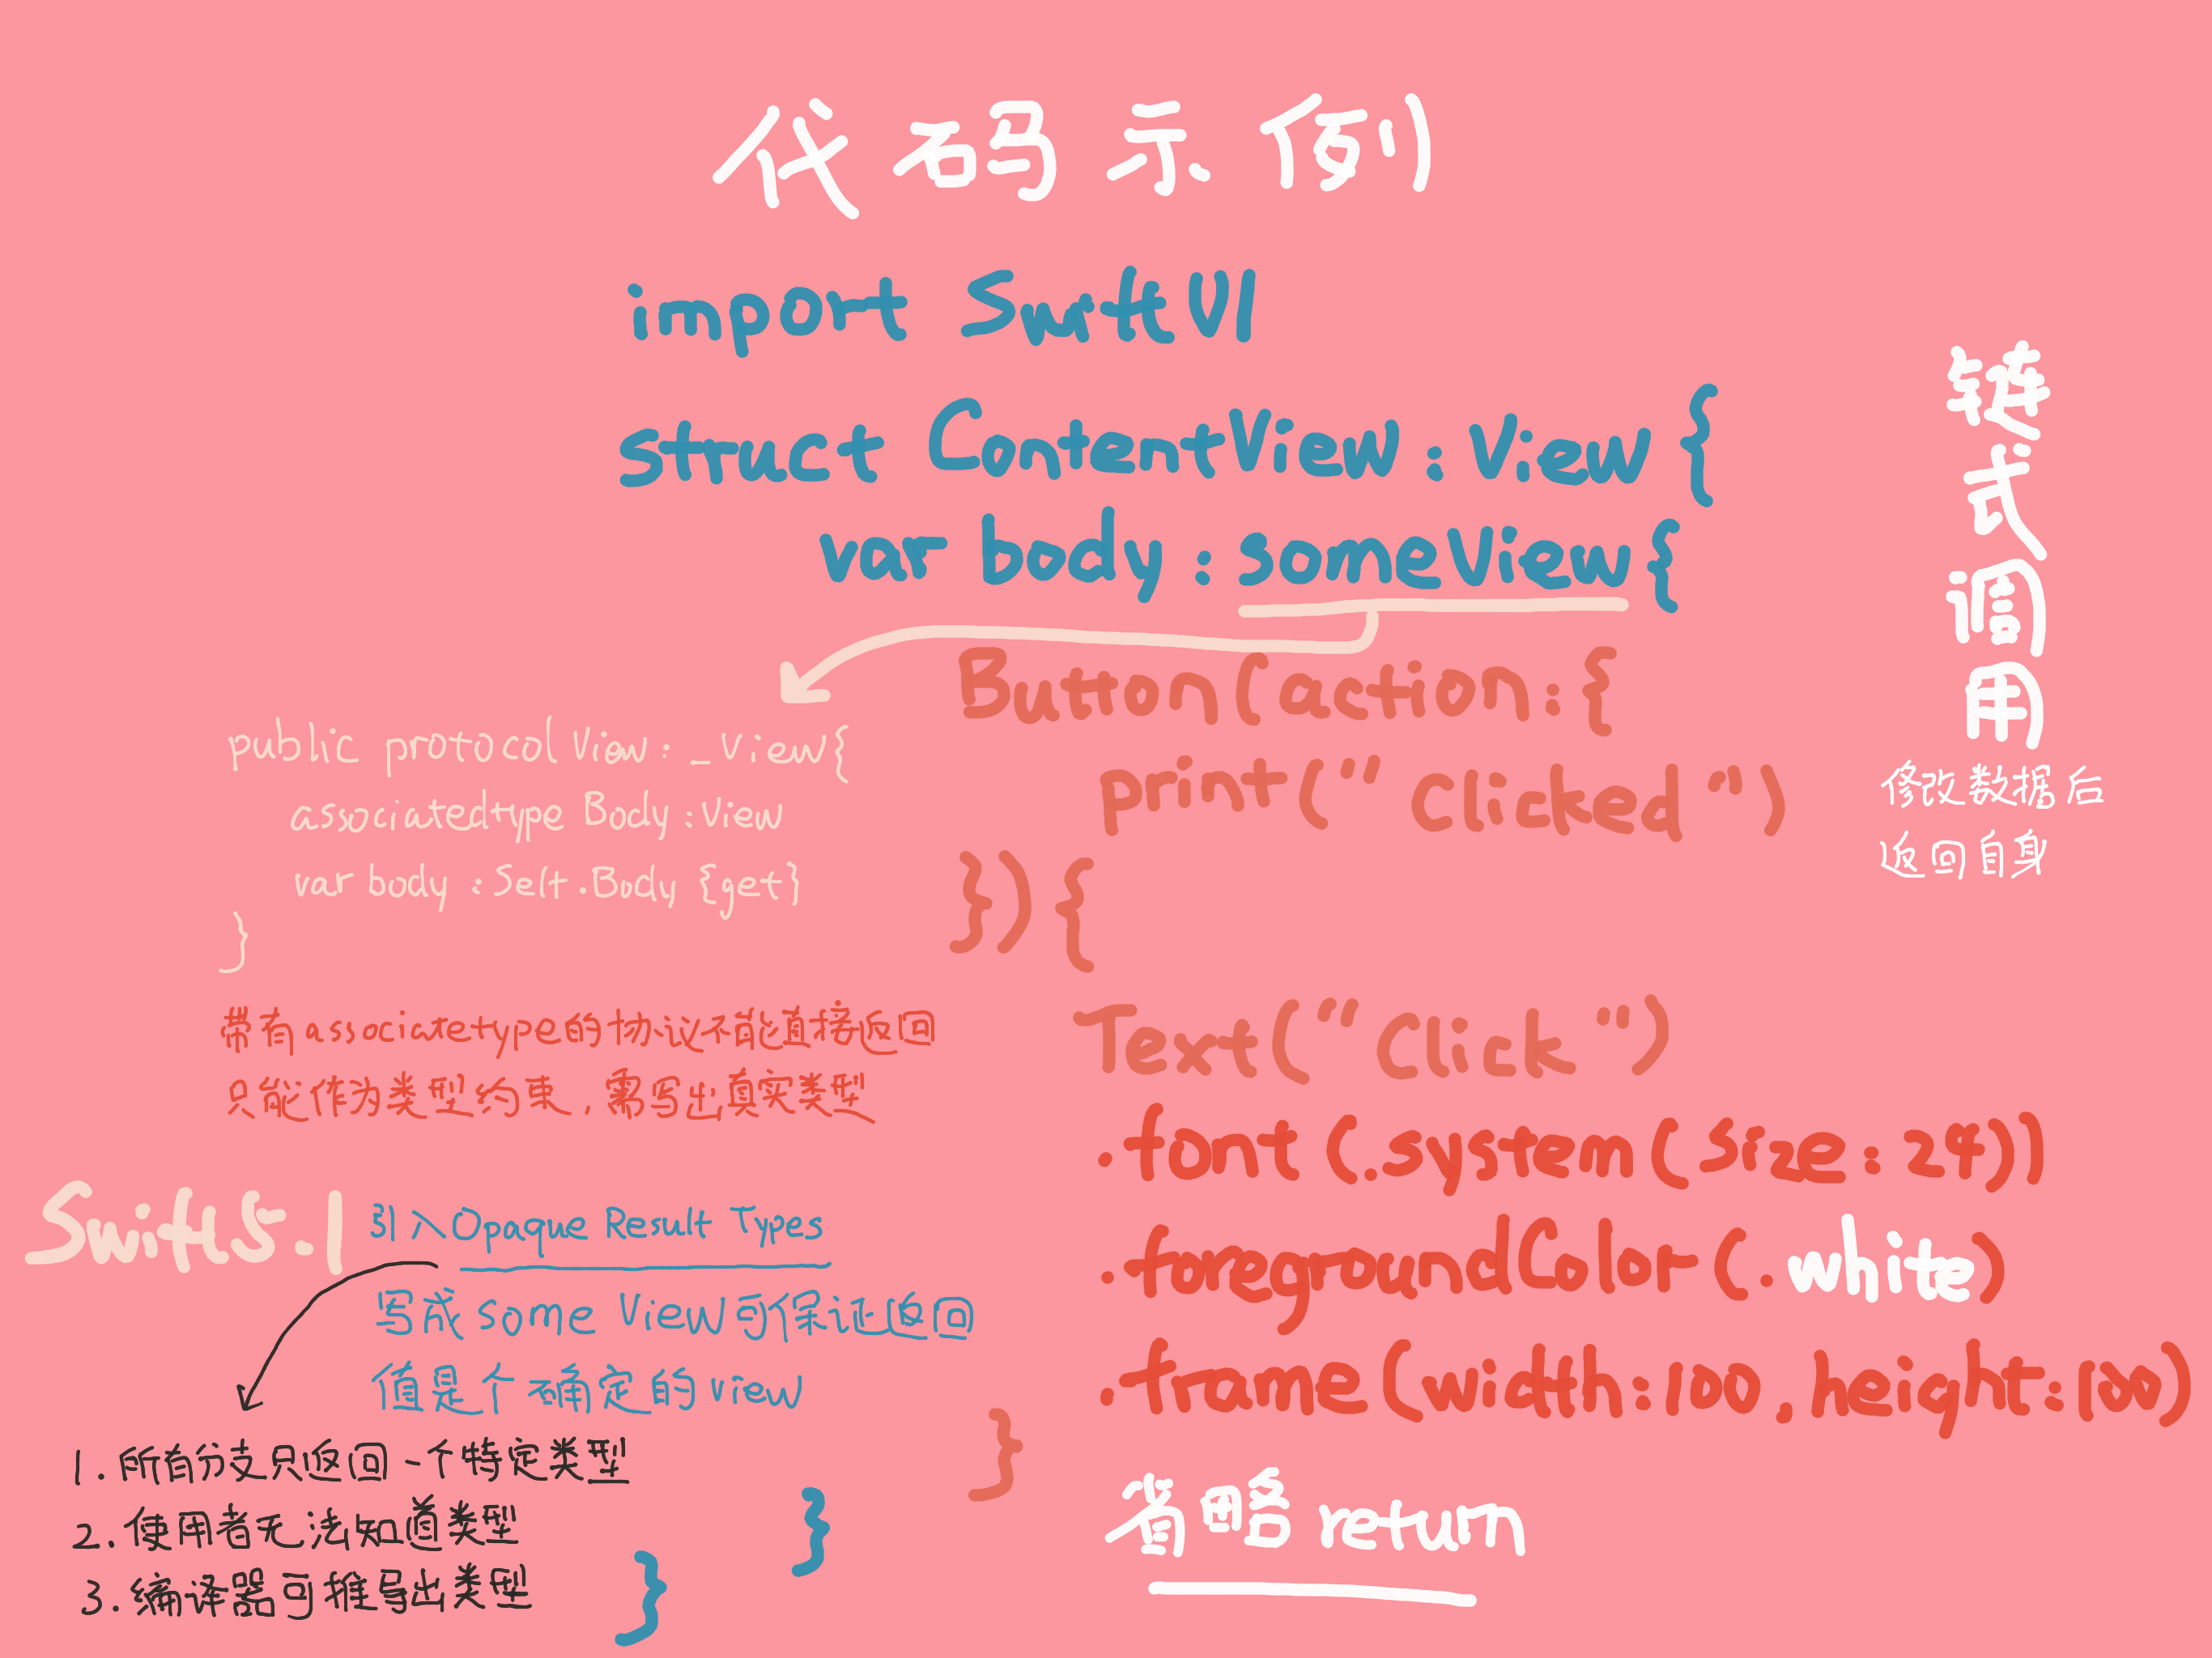 代码示例
import SwiftUI
struct ContentView : View {
var body : some View {
Button (action : {
print (" Clicked ")
}) {
Text (" Click ")
.font (.system (size : 24))
.foregroundColor (.white)
.frame (width : 100, height : 100)
}
省略 return
}
}
链式调用
修改数据后
返回自身
public protocol View : _View {
associatedtype Body : View
var body : Self.Body {get}
}
带有 associatetype 的协议不能直接返回
只能作为类型约束，需写出真实类型
Swift 5.1
引入 Opaque Result Types
写成 some View 可保证返回
值是个确定的 view
1. 所有分支只返回一个特定类型
2. 使用者无法知道类型
3. 编译器可推导出类型